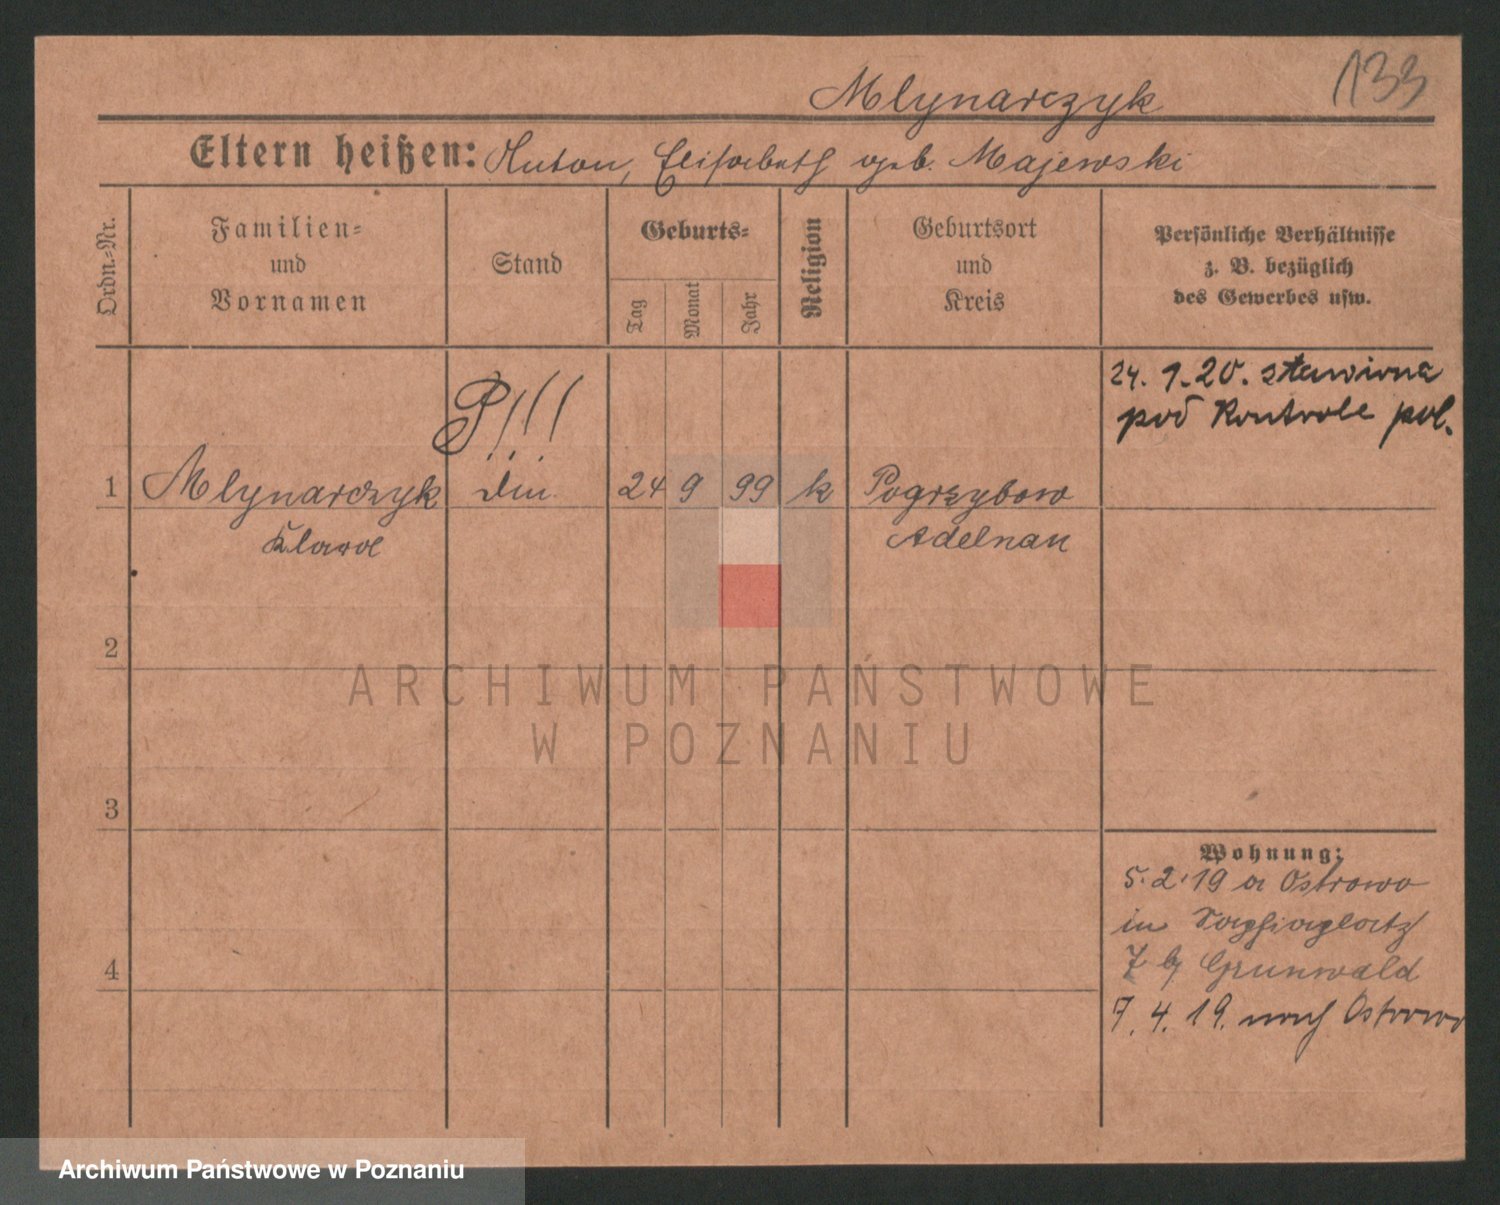 133
Mlynarczyk
Eltern heißen: Anton, Elisabeth geb. Majewski
Ordn.-Nr.
Familien-
und
Vornamen
Stand
Geburts-
Tag
Monat
Jahr
Religion
Geburtsort
und
Kreis
Persönliche Verhältnisse
z. B. bezüglich
des Gewerbes usw.
24. 9. 20. stawiona
pod Kontrole pol.
P!!!
1 Mlynarczyk
24 9 99 k Pogrzybow
Adelnau
2
3
4
Wohnung:
5. 2. 19 a Ostrowo
in
7 b/ Grunwald
7. 4. 19. nach Ostrowo
ARCHIWUM PAŃSTWOWE
W POZNANIU
Archiwum Państwowe w Poznaniu